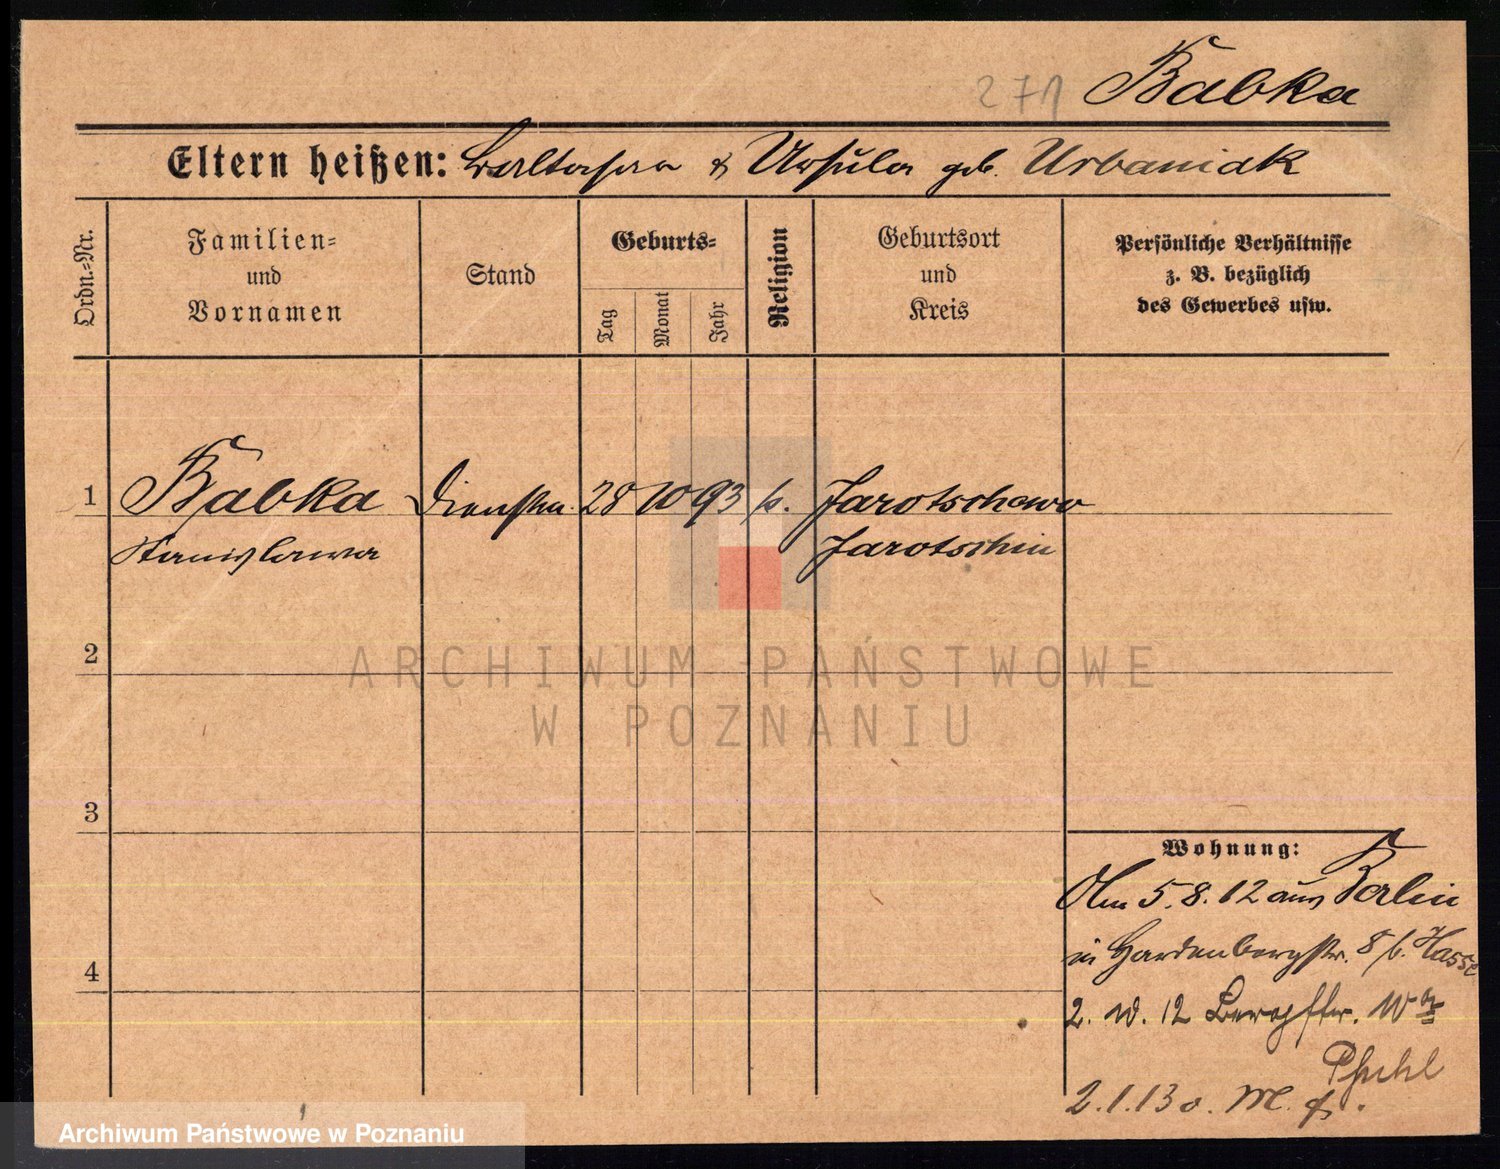 271 Babka
Eltern heißen: Balthasar & Ursula geb. Urbaniak
Ordn.-Nr.
Familien-
und
Vornamen
Stand
Geburts-
Tag
Monat
Jahr
Religion
Geburtsort
und
Kreis
Persönliche Verhältnisse
z. B. bezüglich
des Gewerbes usw.
1 Babka Dienstm. 28 10 93 k. Jarotschewo
Stanislawa Jarotschin
2
ARCHIWUM PAŃSTWOWE
W POZNANIU
3
Wohnung:
5.8.12 aus Berlin
in Hardenbergstr. 8 b. Hasse
2. 10. 12 Bergstr. 10
4
Pfuhl
2.1.13 o.
Archiwum Państwowe w Poznaniu